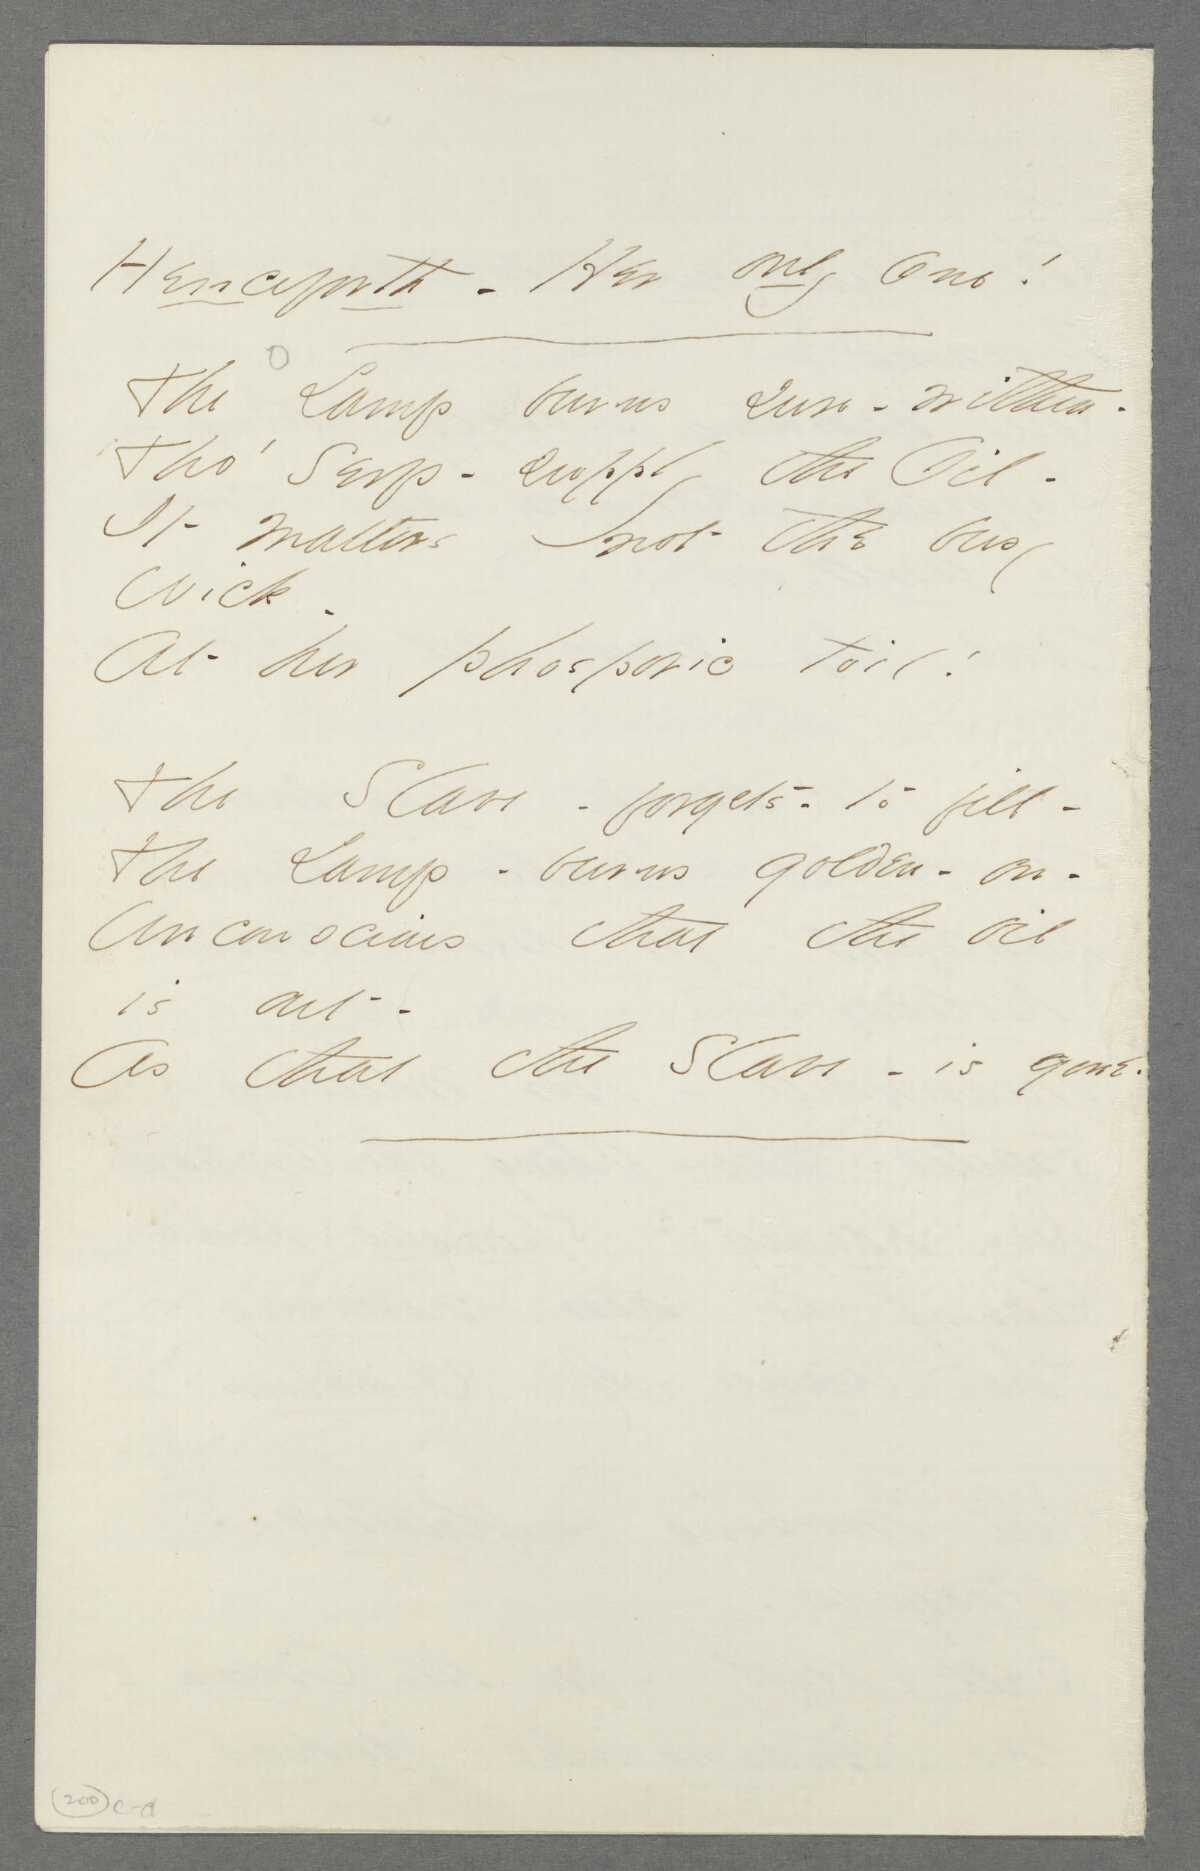 Henceforth - Her only One!
O
The Lamp burns sure - within -
Tho' Serfs - supply the Oil -
It matters not the busy
Wick -
At her phosphoric toil!
The Slave - forgets - to fill -
The Lamp - burns golden - on -
Unconscious that the oil
is out -
As that the Slave - is gone.
200 c-d